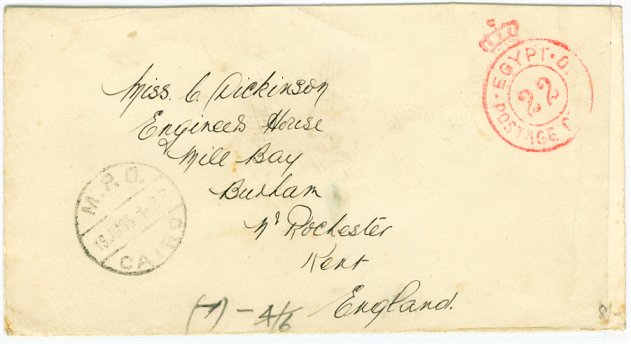 EGYPT · 
22
· POSTAGE
Miss. C. Dickinson
Engineers House
Mill Bay
Burham
Nr Rochester
Kent
England.
M.P.O.
CAIRO
(-1) - 4/6
8/-